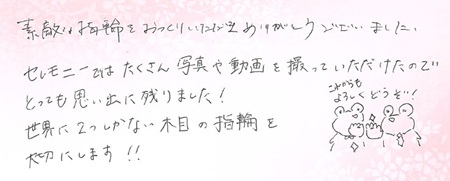 素敵な指輪をおつくりいただきありがとうございました。
セレモニーではたくさん写真や動画を撮っていただけたので
とっても思い出に残りました!
世界に2つしかない木目の指輪を
大切にします!!
これからも
よろしくどうぞ!